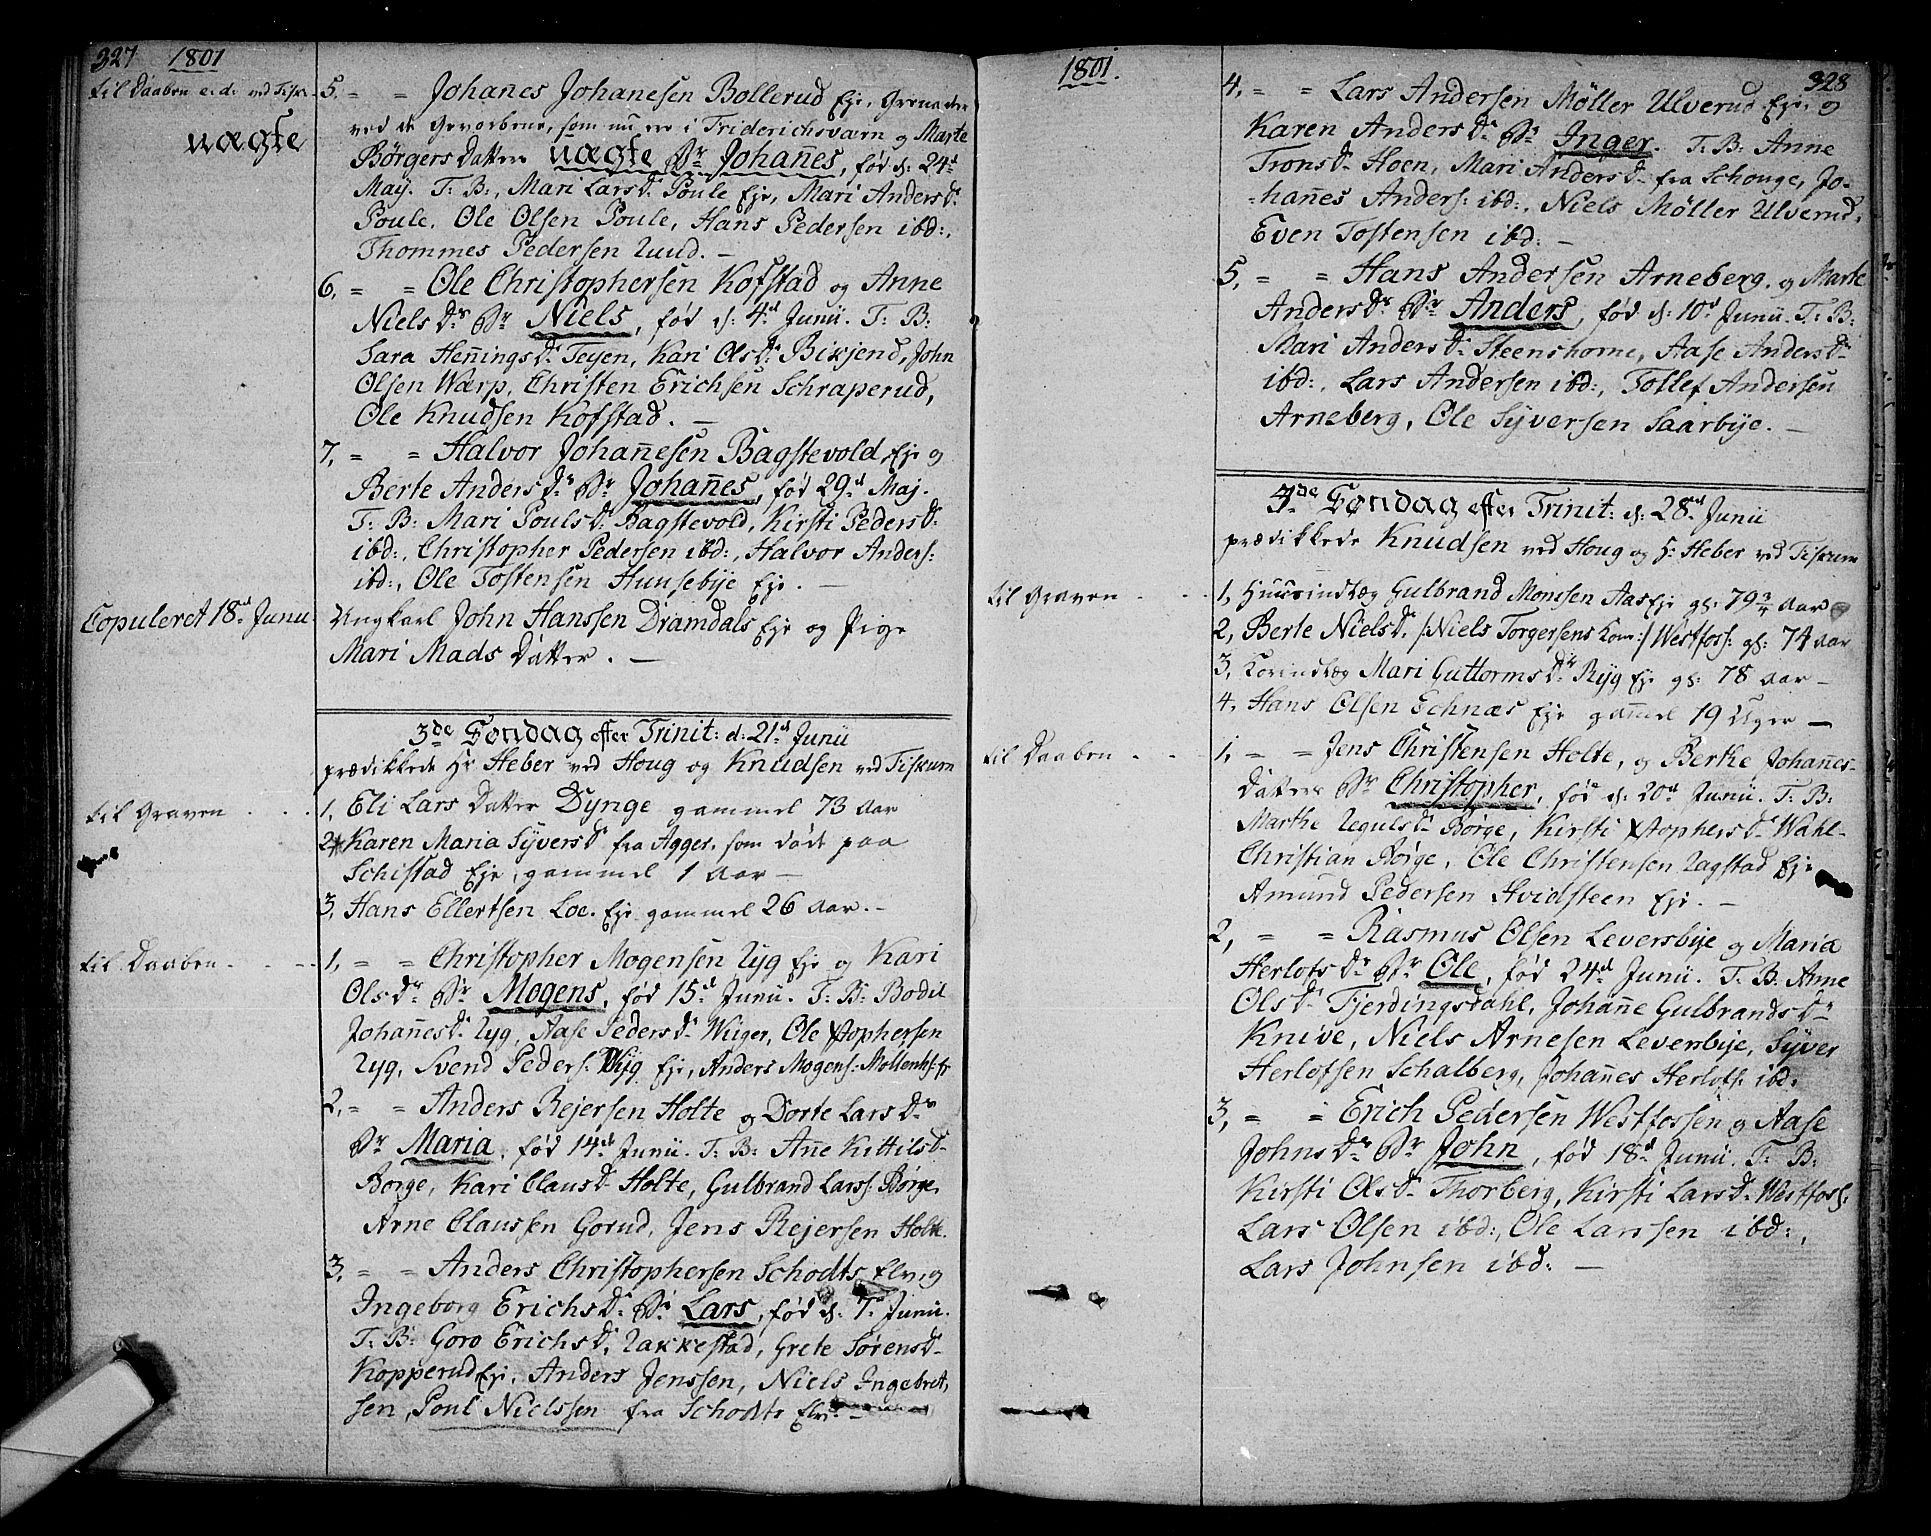 327 1801
til Daaben e: d: ved Fisk:
uægte
5. = = Johanes Johanesen Bollerud Eje, Grenadeer
ved de Gevorbene, som nu ere i Friderichsværn og Marte
Børgers Datter uægte Br Johañes, fød d: 24d
Maij. T: B:, Mari Larsdr Poule Eje, Mari Andersdr
Poule, Ole Olsen Poule, Hans Pedersen ibd:,
Thommes Pedersen Ruud. –
6, = = Ole Christophersen Kofstad og Anne
Nielsdr Br Niels, fød d: 4d Junii. T: B:
Sara Heñingsdr Teyen, Kari Olsdr Bixjend, John
Olsen Wærp, Christen Erichsen Schraperud,
Ole Knudsen Kofstad. –
7, = = Halvor Johañesen Bagstevold Eje og
Berte Andersdr Br Johañes, fød 29d Maj.
T: B: Mari Poulsdr Bagstevold, Kirsti Pedersdr
ibd:, Christopher Pedersen ibd:, Halvor Anders:
ibd:, Ole Tostensen Huusebije Eje. –
Copuleret 18d Junii
Ungkarl John Hanssen Dramdals Eje og Pige
Mari Mads Datter. –
3de Søndag efter Trinit: d: 21d Junii
prædikkede Hr Heber ved Houg og Knudsen ved Fiskum
til Graven . . .
1, Eli Lars Datter Dynge gammel 73 Aar
2, Karen Maria Syversdr fra Agger, som døde paa
Schistad Eje, gammel 1 Aar –
3, Hans Ellertsen Loe. Eje gammel 26 Aar. –
til Daaben . . .
1, = = Christopher Mogensen Ryg Eje og Kari
Olsdr Br Mogens, fød 15d Junii. T: B: Bodil
Johañesdr Ryg, Aase Pedersdr Wiiger, Ole Xstophersen
Ryg, Svend Peders: Ryg Eje, Anders Mogens:
2, = = Anders Rejersen Holte og Dorte Larsdr
Br Maria, fød 14d Junii. T: B: Añe Kittilsdr
Børge, Kari Clausdr Holte, Gulbrand Larss: Børge,
Arne Claussen Gorud, Jens Rejersen Holte.
3, = = Anders Christophersen Schodts Elv og
Ingeborg Erichsdr Br Lars, fød d: 7d Junii.
T: B: Goro Erichsdr Rakkestad, Grete Sørensdr
Kopperud Eje, Anders Jenssen, Niels Ingebret,
sen, Poul Nielssen fra Schodts Elv –
1801.
328
4, = = Lars Andersen Møller Ulverud Eje og
Karen Andersdr Br Inger. T: B: Anne
Tronsdr Hoen, Mari Andersdr fra Schouge, Jo-
=hañes Anders: ibd:, Niels Møller Ulverud,
Even Tostensen ibd: –
5, = = Hans Andersen Arneberg, og Marte
Andersdr Br Anders, fød d: 10d Junii. T: B:
Mari Andersdr Steenshorne, Aase Andersdr
ibd:, Lars Andersen ibd:, Tollef Andersen
Arneberg, Ole Syversen Saarbye. –
Søndag efter Trinit: d: 28d Junii
prædikkede Knudsen ved Houg og H: Heber ved Fiskum
til Graven . . .
1, Huusindlæg Gulbrand Monssen Aas Eje gl: 79 3/4 Aar
2, Berte Nielsdr /:Niels Torgersens Kone:/ Westfoss: gl: 74 Aar
3, Mari Guttormsdr Ryg Eje gl: 78 Aar –
4, Hans Olsen Echnæs Eje gam̃el 19 Uger –
til Daaben . . .
1, = = Jens Christensen Holte, og Berthe Johañes-
Datter Br Christopher, fød d: 20d Junii. T: B:
Marthe Regulsdr Børge, Kirsti Xstophersdr Wahl-
Christian Børge, Ole Christensen Ragstad Eje
Amund Pedersen Hvidsteen Eje. –
2, = = Rasmus Olsen Leversbije og Maria
Herlofsdr Br Ole, fød 24d Junii. T: B: Anne
Olsdr Fjerdingsdahl, Johañe Gulbrandsdr
Knive, Niels Arnesen Leversbije, Syver
Herlofsen Schalberg, Johañes Herlofs: ibd:
3, = = Erich Pedersen Westfossen og Aase
Johnsdr Br John, fød 18d Junii. T: B:
Kirsti Olsdr Thorberg, Kirsti Larsdr Westfoss:
Lars Olsen ibd:, Ole Larssen ibd:,
Lars Johnsen ibd: –